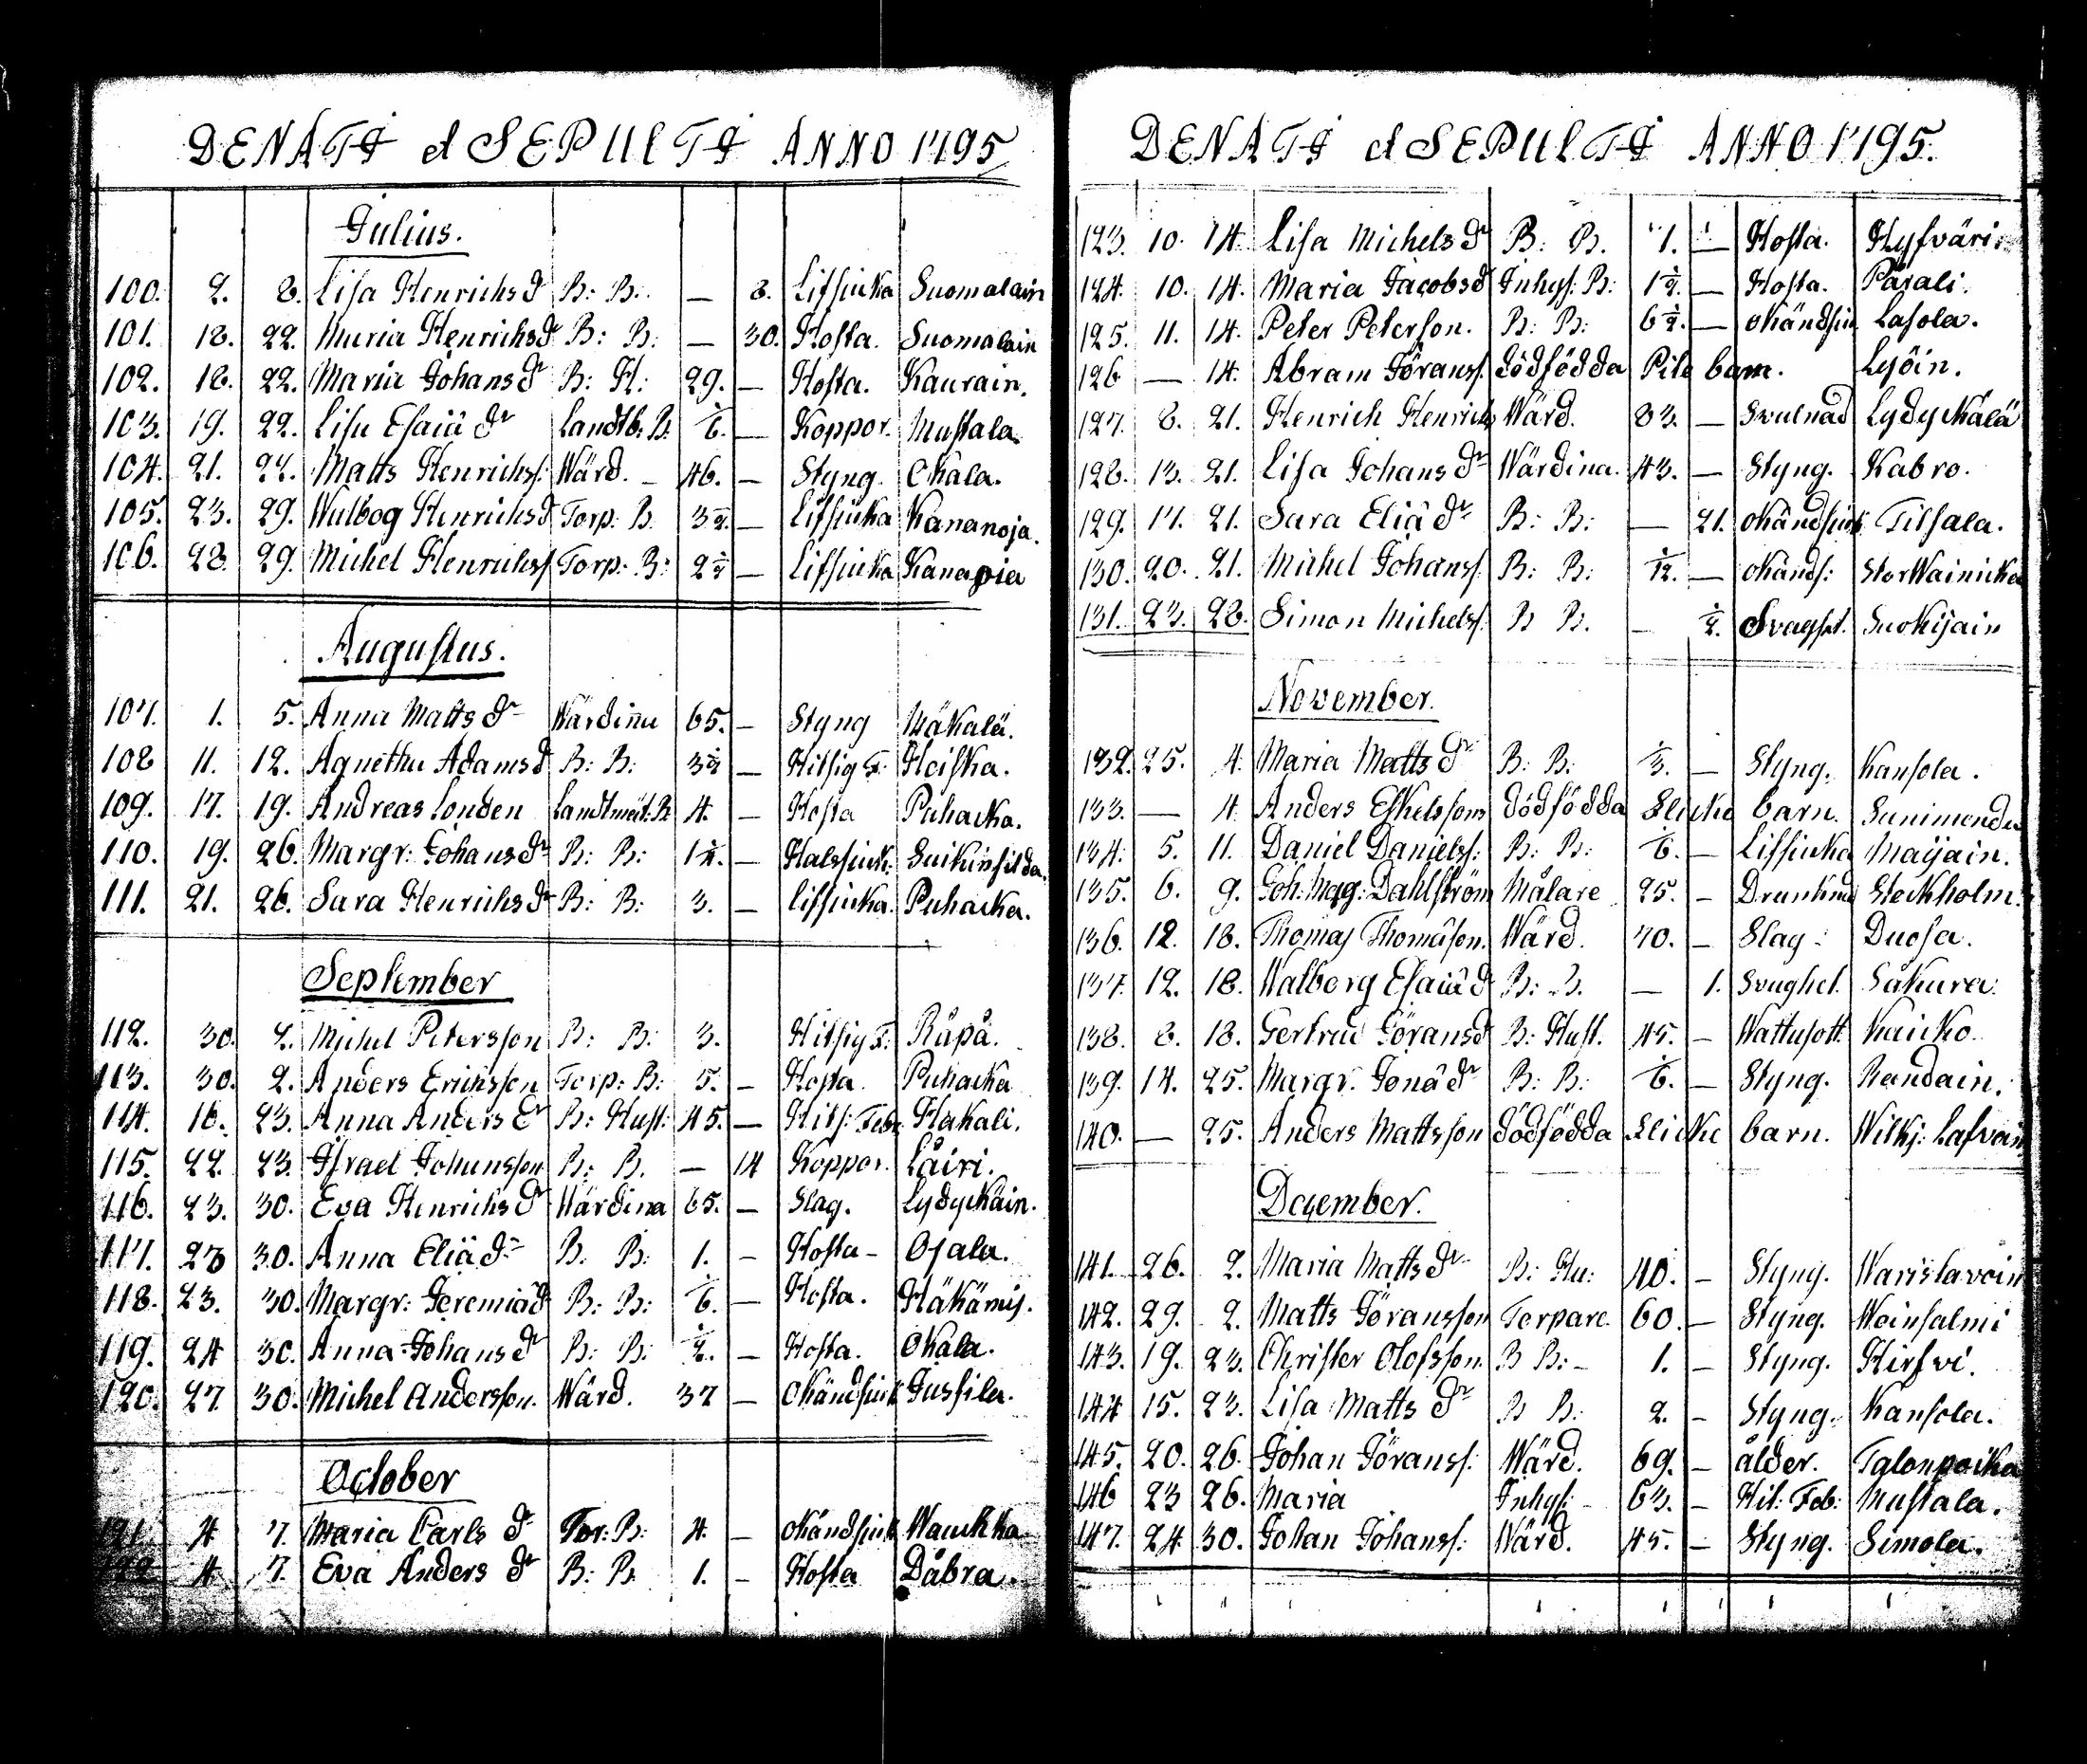 DENATI et SEPULTI ANNO 1795
Julius.
100. 2. 8. Lisa Henrichs dr B: B: — 8. Lissjucka Suomalain
101. 18. 22. Maria Henrichsdr B: B: — 30. Hosta. Suomalain
102. 18. 22. Maria Johans dr B: H: 29. — Hosta. Kaurain.
103. 19. 22. Lisa Esaiä dr Landtb: B: 1/6. — Koppor. Mustala.
104. 21. 22. Matts Henrichss: Wärd. 46. — Styng. Okala.
105. 23. 29. Walbog Henrichsd Torp: B. 3 1/2. — Lissjucka Kananoja.
106. 28. 29. Michel Henrichss Torp: B: 2 1/2 — Lissjucka Kanapia
Augustus.
107. 1. 5. Anna Matts dr Wärdinna 65. — Styng Mäkalä.
108 11. 12. Agnetha Adamsd B: B: 3 1/2 — Hitsig F: Heiska.
109. 17. 19. Andreas Londen Landtmät: B: 4. — Hosta Puhacka.
110. 19. 26. Margr: Johansdr B: B: 1 1/4. — Halssjuck:
111. 21. 26. Sara Henrichsdr B: B: 3. — Lissjucka. Puhacka.
September
112. 30. 2. Michel Petersson B: B: 3. Hitsig F: Räpä.
113. 30. 2. Anders Ericksson Torp: B: 5. — Hosta. Puhacka
114. 16. 23. Anna Anders dr B: Hust: 45. — Hits: Feb: Hakali.
115. 22. 23. Israel Johansson B: B. — 14 Koppor. Läiri.
116. 23. 30. Eva Henrichs dr Wärdina 65. — Slag. Lydyckäin.
117. 23 30. Anna Eliä dr B. B: 1. — Hosta — Ojala.
118. 23. 30. Margr: Jeremiädr B: B: 1/6. — Hosta. Häkämis.
119. 24 30. Anna Johans dr B: B: 1/2. — Hosta. Okala.
120. 27. 30. Michel Andersson. Wärd. 37 — Okändsjuck Jussila.
October
121. 4 7. Maria Carls dr Tor: B: 4. — Okändsjuck Wauhka
122 4. 7. Eva Anders dr B: B. 1. — Hosta Däbra.
DENATI et SEPULTI ANNO 1795.
123. 10. 14. Lisa Michels dr B: B. 1. — Hosta. Hyfväri.
124. 10. 14. Maria Jacobsd Inhys: B: 1 1/2. — Hosta. Pärali.
125. 11. 14. Peter Peterson. B: B: 6 1/2. — Okändsju Lasola.
126 — 14. Abram Jöranss: dödfödda Pilt barn. Lyöin.
127. 8. 21. Henrich Henrichs Wärd. 83. — Svulnad Lydyckälä
128. 13. 21. Lisa Johans dr Wärdina. 43. — Styng. Kabro.
129. 17. 21. Sara Eliä dr B: B: — 21. Okändsjuck Tilsala.
130. 20. 21. Michel Johanss: B: B: 1/12. — Okänds: StorWainicka
131. 23. 28. Simon Michelss: B B. — 1/2. Svaghet. Suokijain
November.
132. 25. 4. Maria Matts dr B: B: 1/3. — Styng. Kansola.
133. — 4. Anders Eskelssons dödfödda Flicke barn.
134. 5. 11. Daniel Danielss: B: B: 1/6. — Lissjucka Maijain.
135. 6. 9. Joh: Mag: Dahlström Målare 25. — Drunknad Stockholm.
136. 12. 18. Thomas Thomäson. Wärd. 70. — Slag. Duosa.
137. 12. 18. Walborg Esaiä d B: B. — 1. Svaghet. Säkura.
138. 8. 18. Gertrud Jöransd B: Hust. 45. — Wattusott. Kaicko.
139. 14. 25. Margr. Jonä dr B: B: 1/6. — Styng. Randain.
140. — 25. Anders Mattsson dödfödda Flicke barn. Wilkj: Lafvoin
December.
141. 26. 2. Maria Matts dr B: Hu: 40. — Styng. Warislavoin
142. 29. 2. Matts Jöransson Torpare. 60. — Styng. Weinsalmi
143. 19. 23. Christer Olofsson. B B: 1. — Styng. Hirfvi.
144 15. 23. Lisa Matts dr B B: 2. — Styng. Kansola.
145. 20. 26. Johan Jöranss: Wärd. 69. — ålder. Talonpoika
146 23 26. Maria Inhys: 63. — Hit: Feb: Mustala.
147. 24 30. Johan Johanss: Wärd. 45. — Styng. Simola.